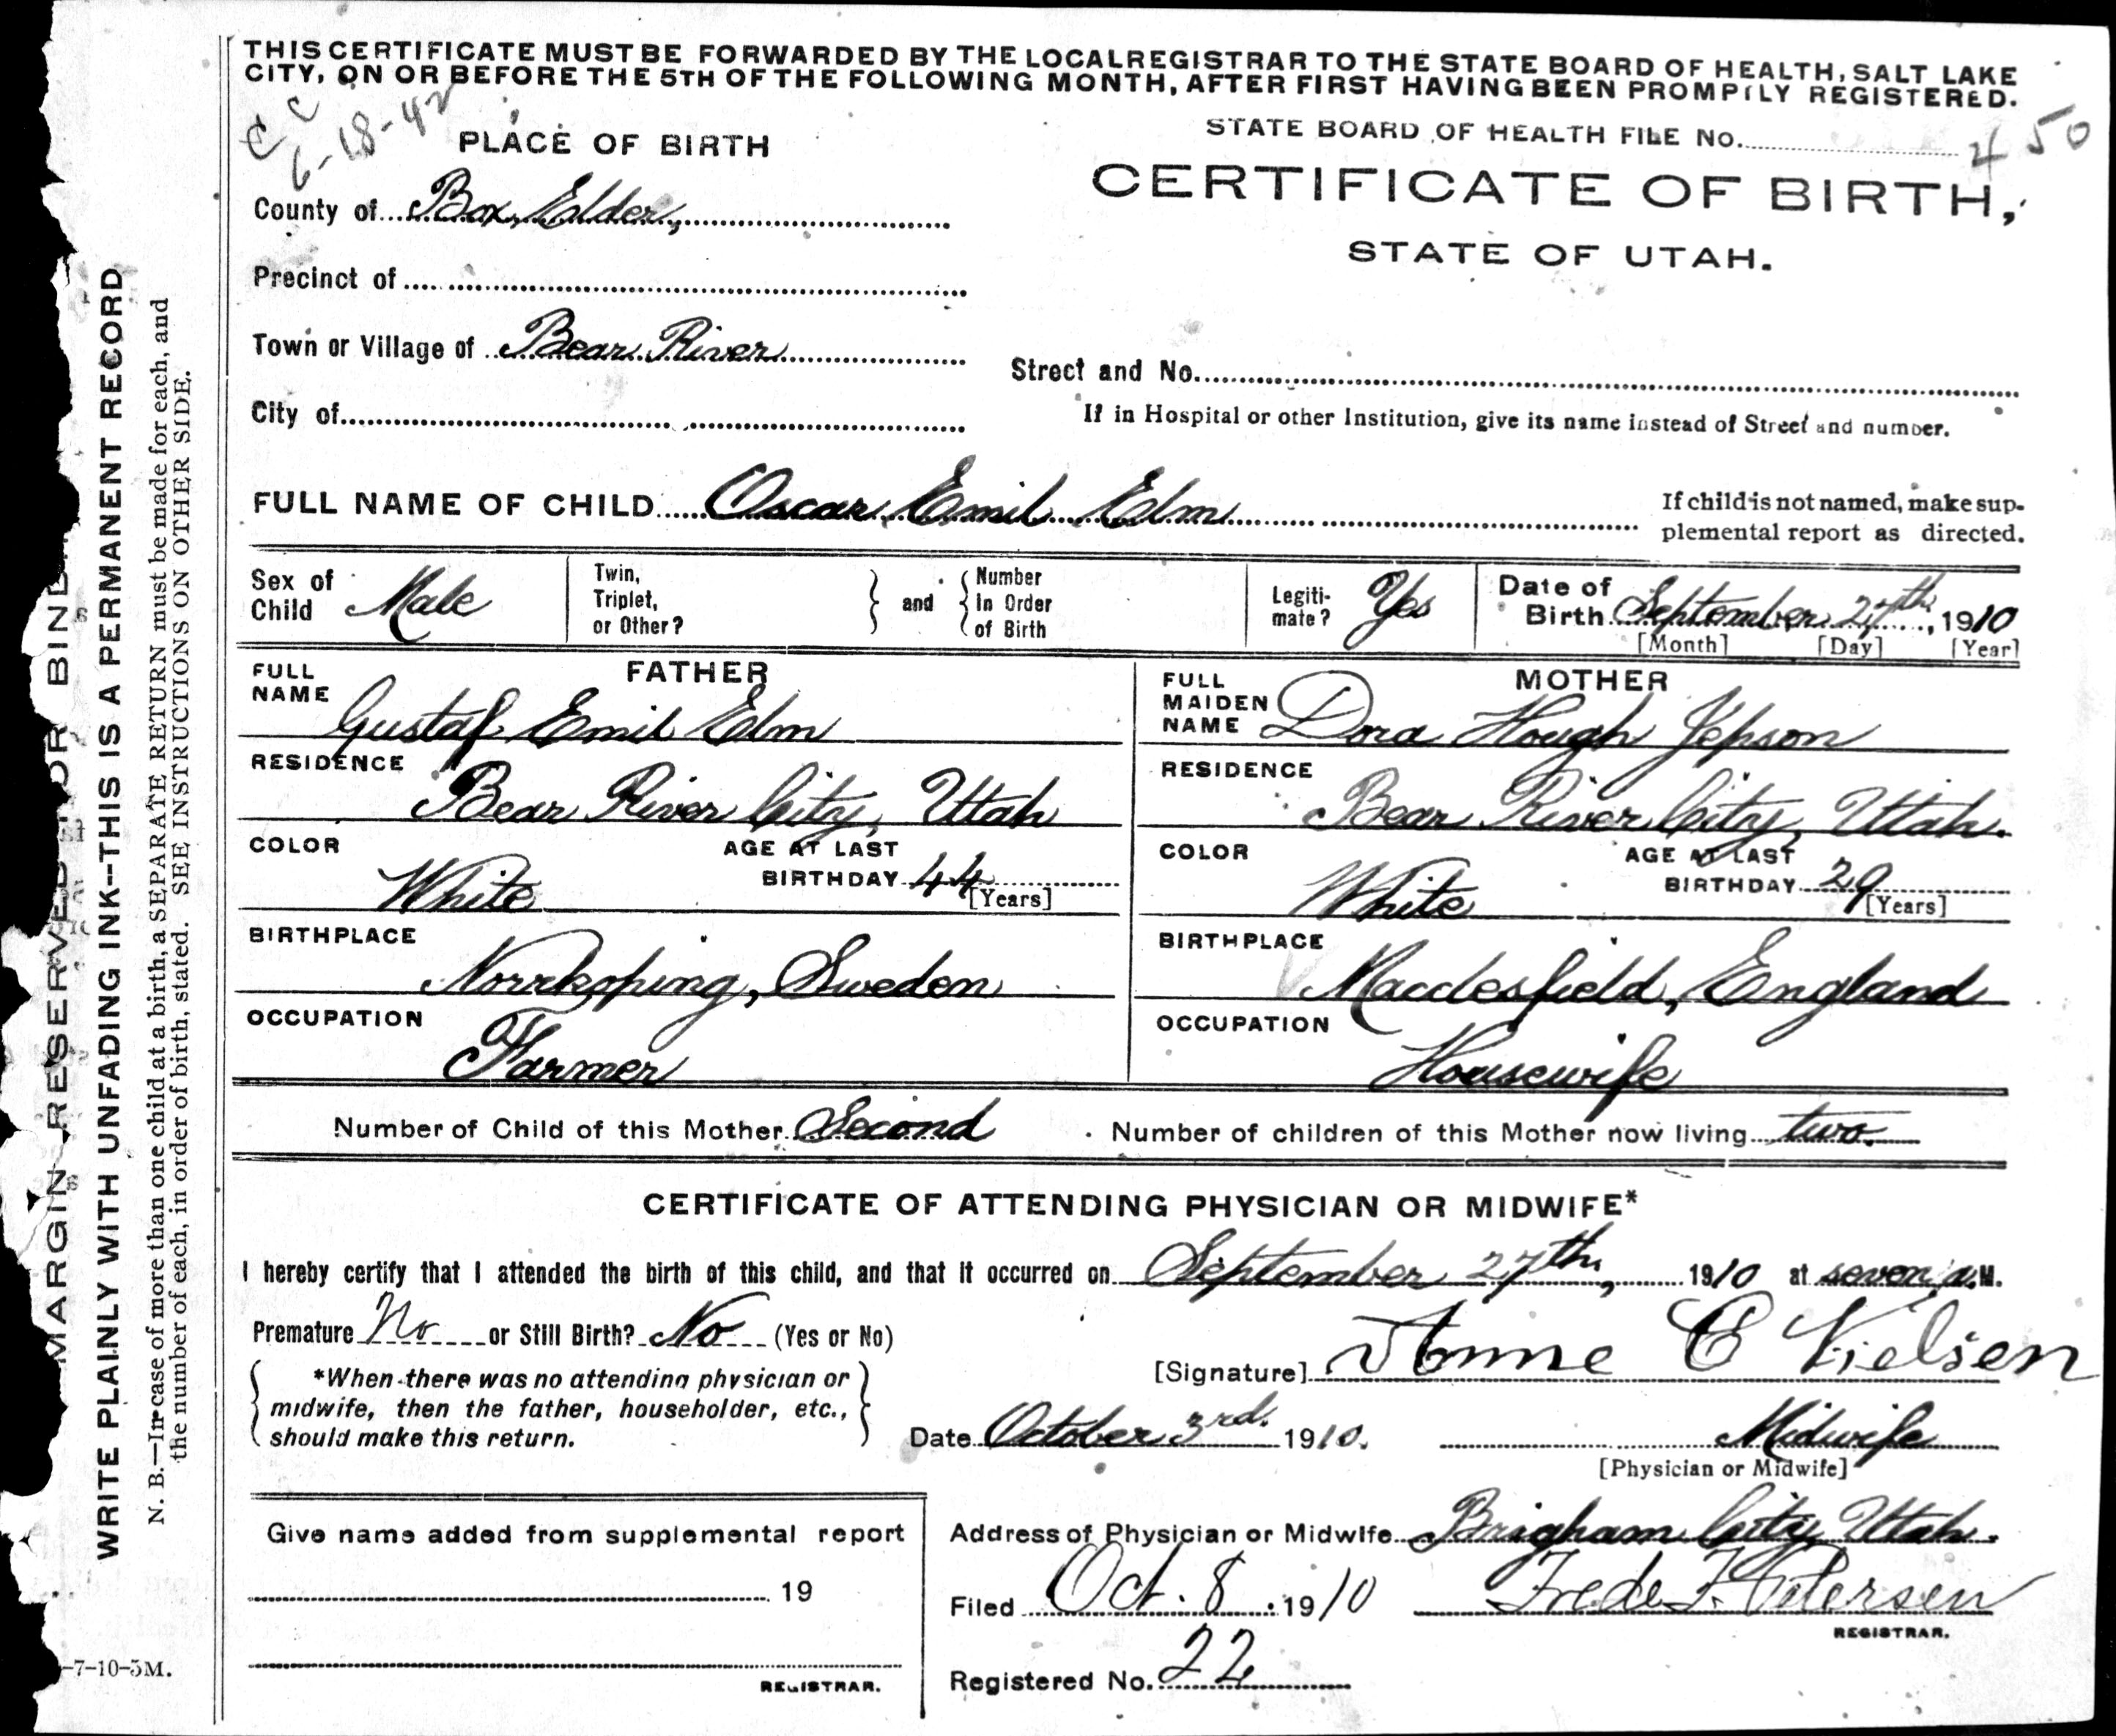 THIS CERTIFICATE MUST BE FORWARDED BY THE LOCAL REGISTRAR TO THE STATE BOARD OF HEALTH, SALT LAKE
CITY, ON OR BEFORE THE 5TH OF THE FOLLOWING MONTH, AFTER FIRST HAVING BEEN PROMPTLY REGISTERED.
C C
6-18-42
PLACE OF BIRTH
STATE BOARD OF HEALTH FILE NO. 450
CERTIFICATE OF BIRTH,
STATE OF UTAH.
County of Box Elder,
Precinct of
Town or Village of Bear River
Street and No.
City of
If in Hospital or other Institution, give its name instead of Street and number.
FULL NAME OF CHILD Oscar Emil Elm
If child is not named, make sup-
plemental report as directed.
Sex of Child Male
Twin, Triplet, or Other?
and
Number In Order of Birth
Legiti-mate? Yes
Date of Birth September 27th, 1910
[Month] [Day] [Year]
FATHER
FULL NAME Gustaf Emil Elm
RESIDENCE
Bear River City, Utah
COLOR White
AGE AT LAST BIRTHDAY 44 [Years]
BIRTHPLACE
Norrkoping, Sweden
OCCUPATION
Farmer
MOTHER
FULL MAIDEN NAME Dora Hough Jepson
RESIDENCE
Bear River City, Utah.
COLOR White
AGE AT LAST BIRTHDAY 29 [Years]
BIRTHPLACE
Macclesfield, England
OCCUPATION
Housewife
Number of Child of this Mother Second
Number of children of this Mother now living two.
CERTIFICATE OF ATTENDING PHYSICIAN OR MIDWIFE*
I hereby certify that I attended the birth of this child, and that it occurred on September 27th, 1910 at seven, a.M.
Premature No or Still Birth? No (Yes or No)
*When there was no attending physician or
midwife, then the father, householder, etc.,
should make this return.
[Signature] Anne C Nielsen
Date October 3rd. 1910.
Midwife
[Physician or Midwife]
Give name added from supplemental report
19
REGISTRAR.
Address of Physician or Midwife Brigham City, Utah.
Filed Oct. 8 1910
Frede F. Petersen
REGISTRAR.
Registered No. 22
-7-10-5M.
MARGIN RESERVED FOR BIND
WRITE PLAINLY WITH UNFADING INK--THIS IS A PERMANENT RECORD
N. B.—In case of more than one child at a birth, a SEPARATE RETURN must be made for each, and
the number of each, in order of birth, stated. SEE INSTRUCTIONS ON OTHER SIDE.